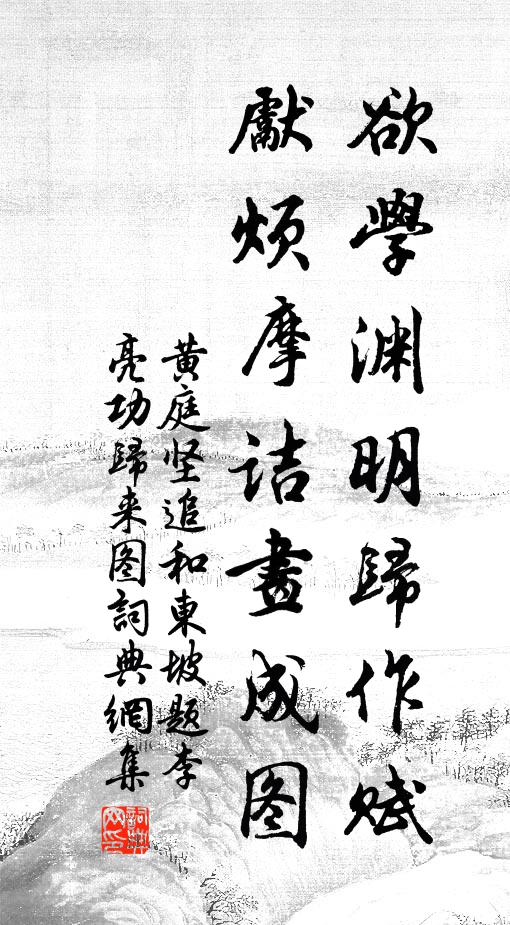 欲學渊明歸作賦
獻煩摩詰畫成图
黄庭坚追和東坡題李
亮功歸来图詞典網集